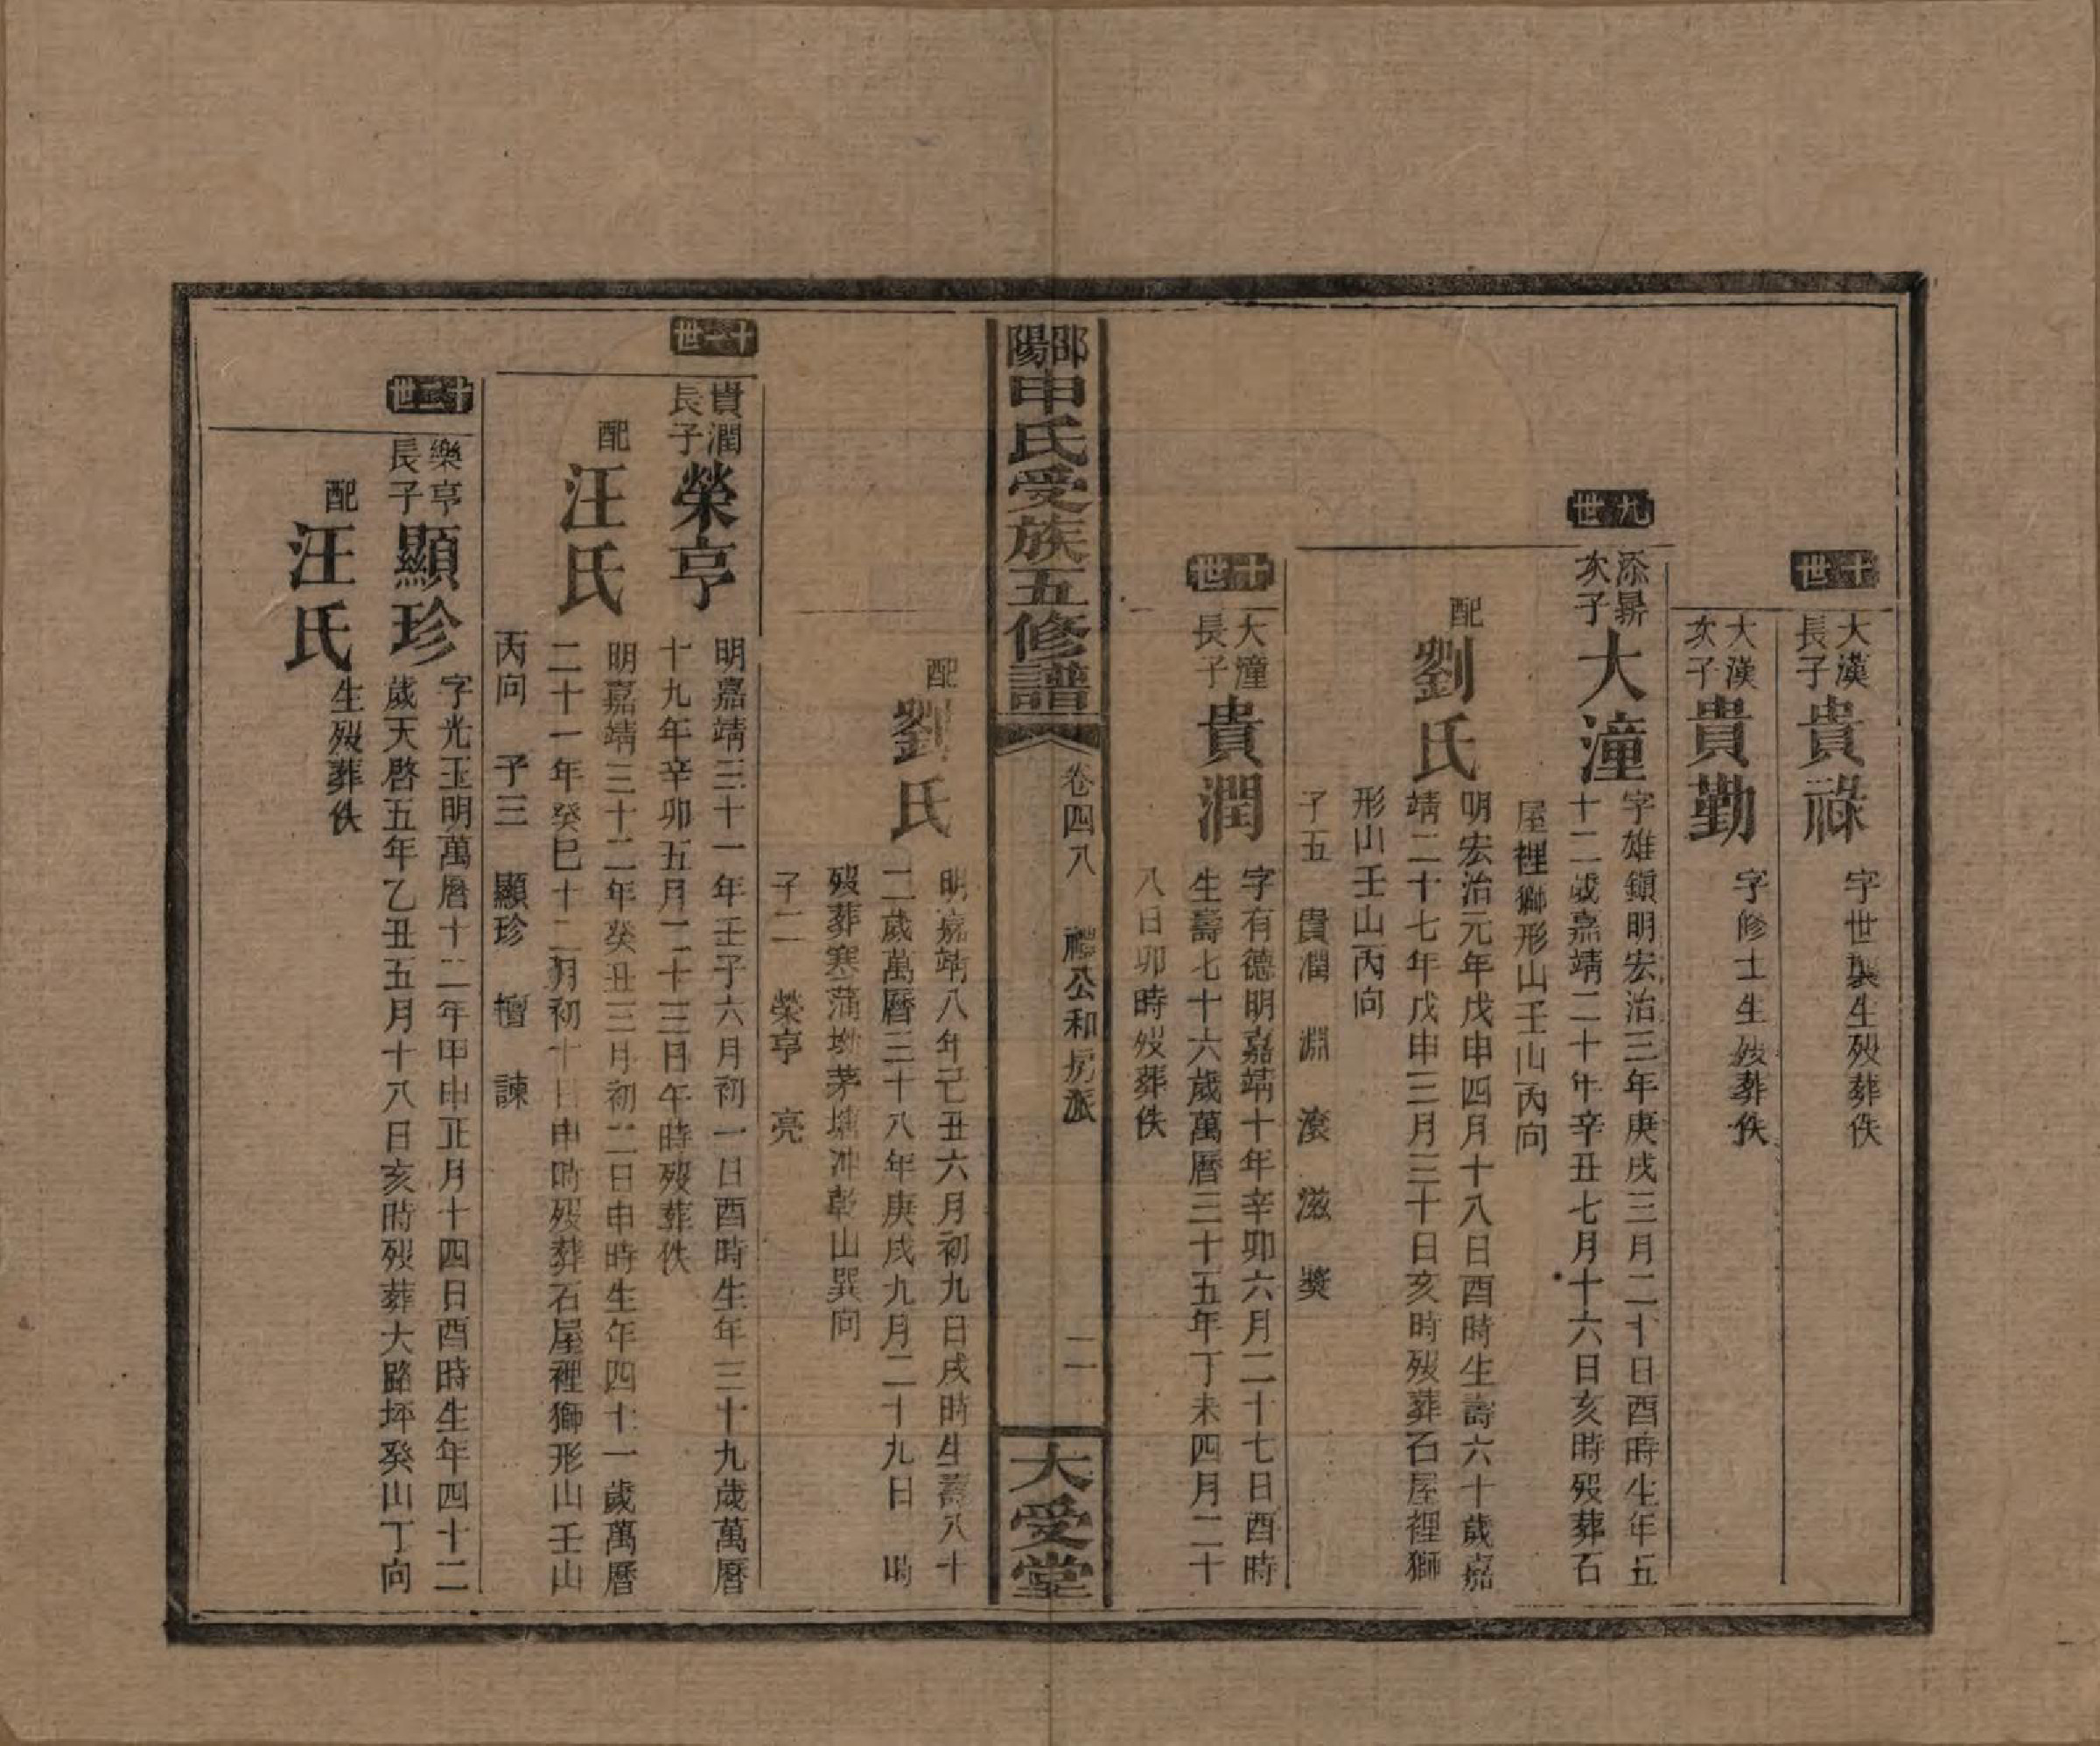 十世
大漢長子
貴祿
字世製生歿葬佚
大漢次子
貴勤
字修士生歿葬佚
九世
添昇次子
大潼
字雄鎮明宏治三年庚戌三月二十日酉時生年五
十二歲嘉靖二十年辛丑七月十六日亥時歿葬石
屋裡獅形山壬山丙向
配
劉氏
明宏治元年戊申四月十八日酉時生壽六十歲嘉
靖二十七年戊申三月三十日亥時歿葬石屋裡獅
形山壬山丙向
子五 貴潤 淵 滾 滋 獎
十世
大潼長子
貴潤
字有德明嘉靖十年辛卯六月二十七日酉時
生壽七十六歲萬曆三十五年丁未四月二十
八日卯時歿葬佚
邵陽申氏受族五修譜
卷四八 禮公和房派
二一
大受堂
配
劉氏
明嘉靖八年己丑六月初九日戌時生壽八十
二歲萬曆三十八年庚戌九月二十九日 時
歿葬寒蒲㘭茅塘冲乾山巽向
子二 榮亨 亮
十一世
貴潤長子
榮亨
明嘉靖三十一年壬子六月初一日酉時生年三十九歲萬曆
十九年辛卯五月二十三日午時歿葬佚
配
汪氏
明嘉靖三十二年癸丑三月初二日申時生年四十一歲萬曆
二十一年癸巳十二月初十日申時歿葬石屋裡獅形山壬山
丙向 子三 顯珍 檀 諫
十二世
樂亨長子
顯珍
字光玉明萬曆十二年甲申正月十四日酉時生年四十二
歲天啓五年乙丑五月十八日亥時歿葬大路坪癸山丁向
配
汪氏
生歿葬佚